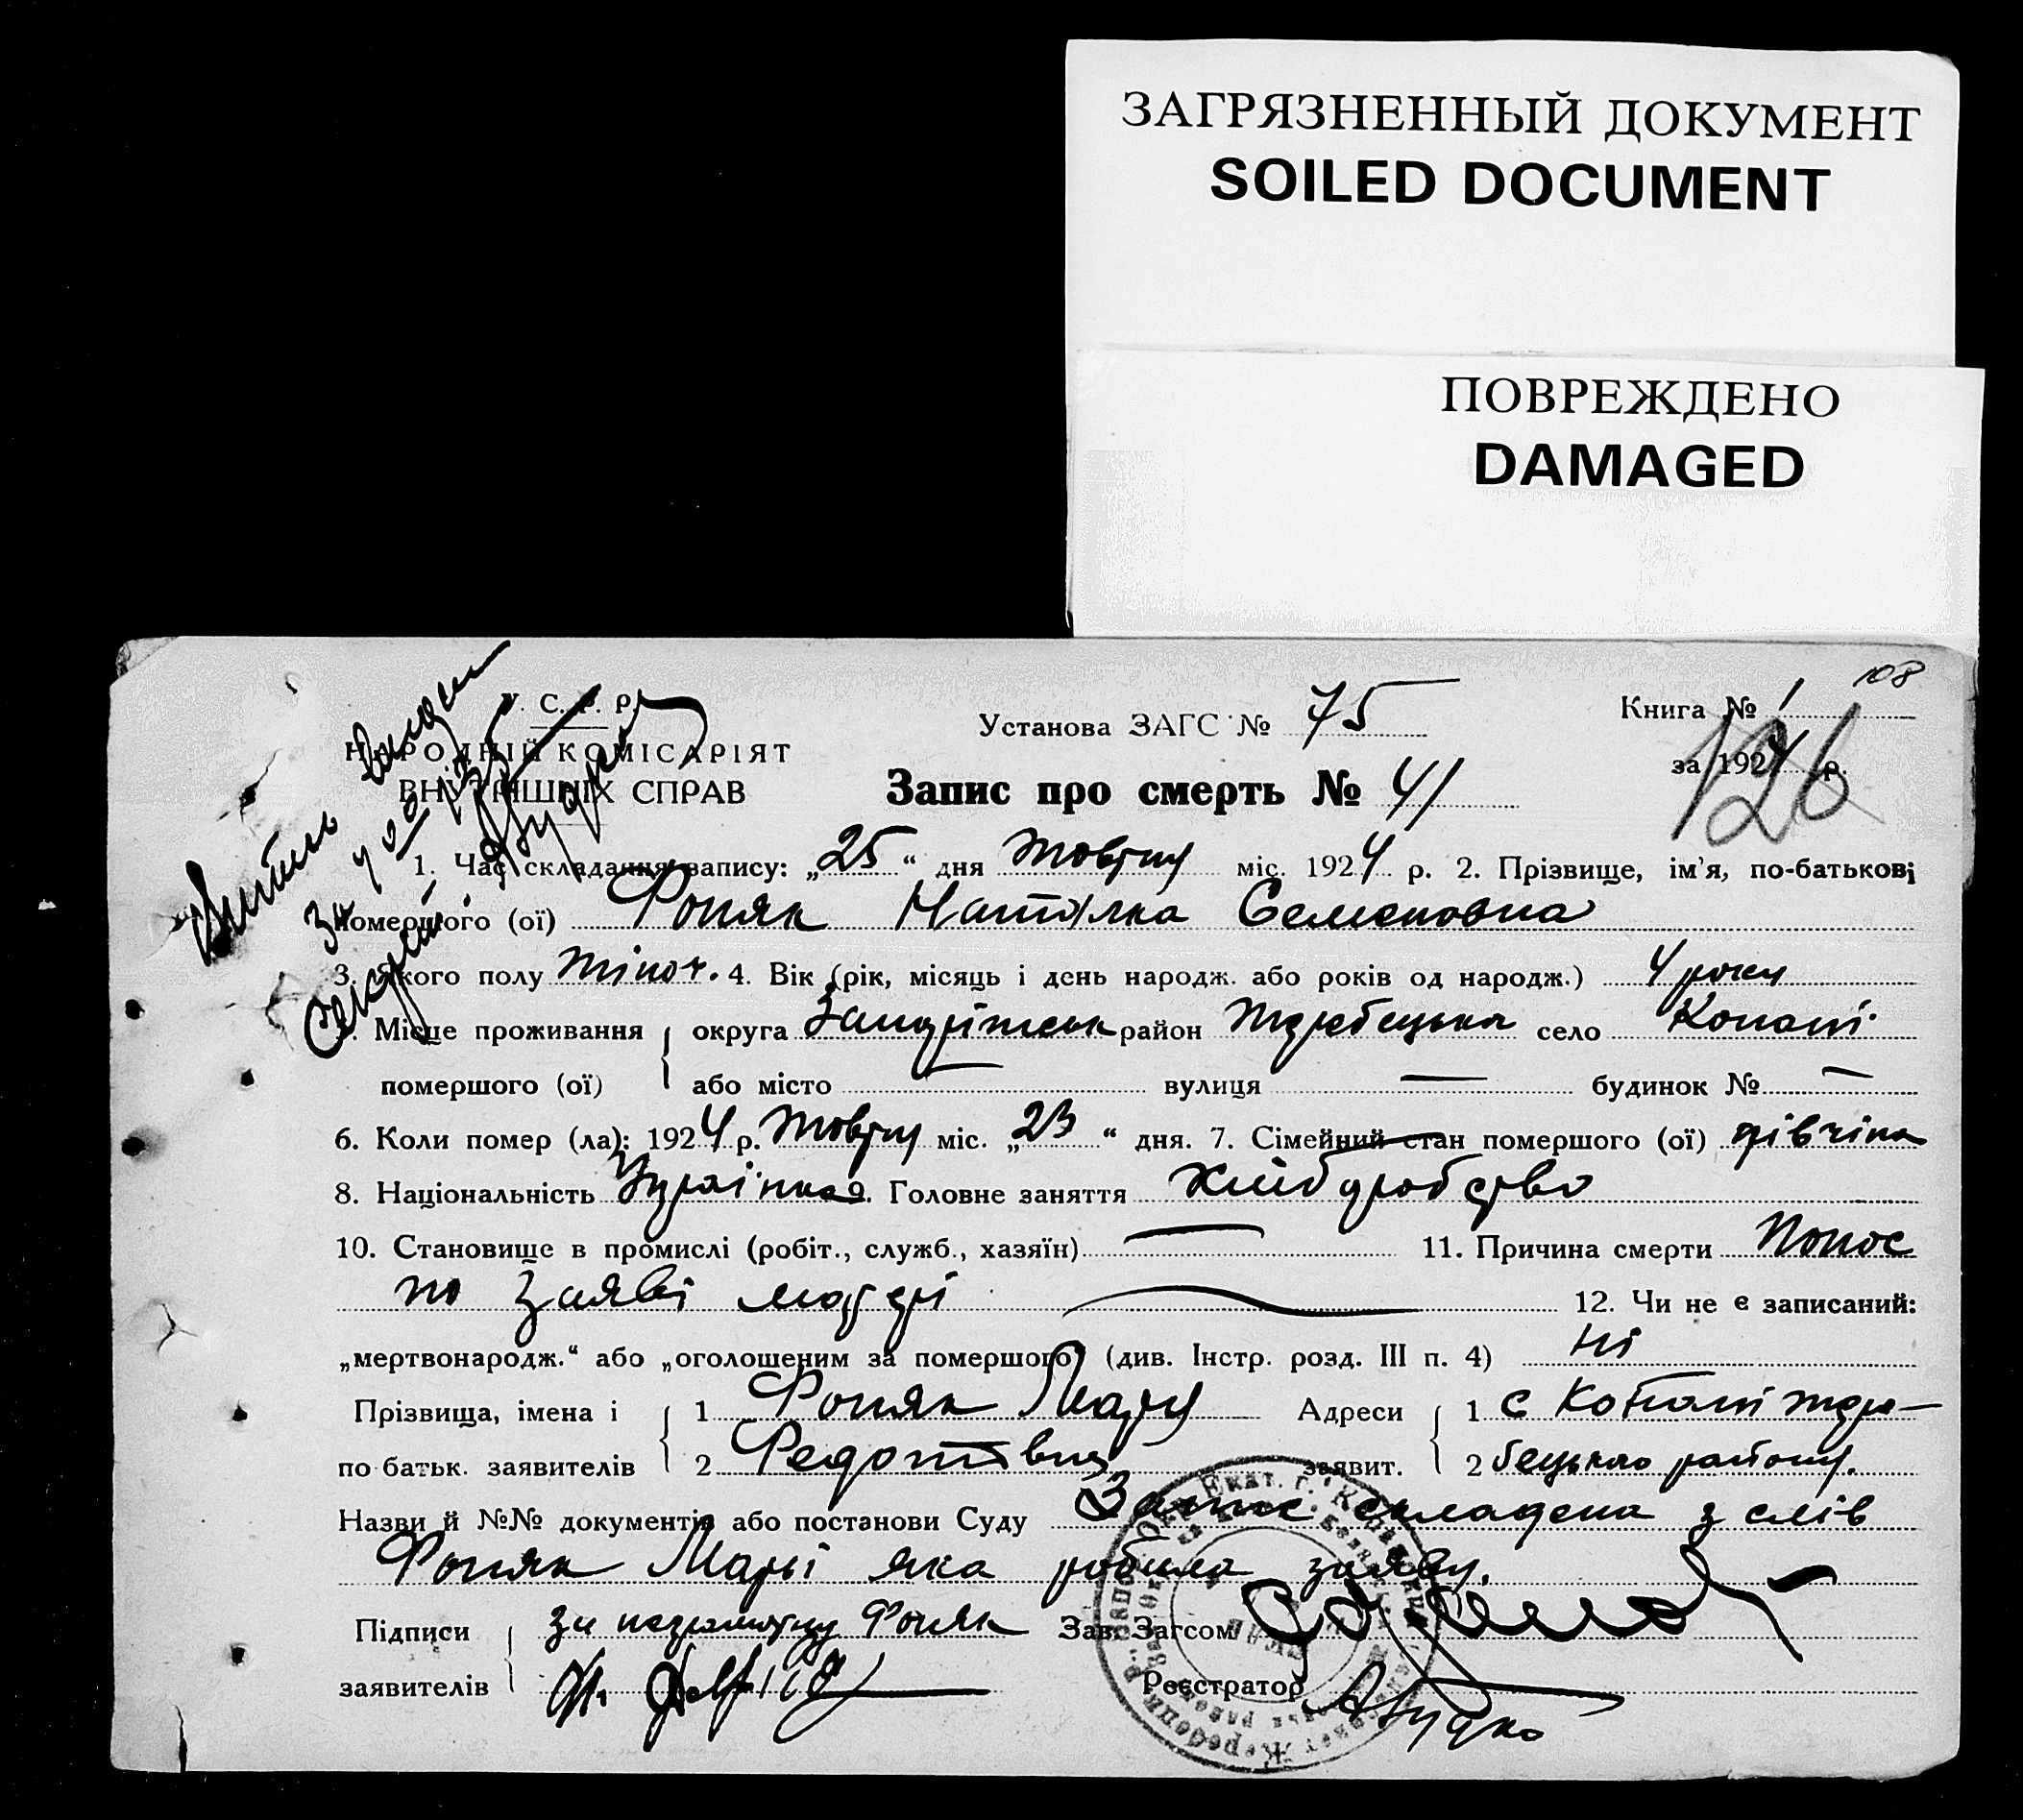 ЗАГРЯЗНЕННЫЙ ДОКУМЕНТ
SOILED DOCUMENT
ПОВРЕЖДЕНО
DAMAGED
108
У. С. Р. Р.
НАРОДНІЙ КОМІСАРІЯТ
ВНУТРІШНІХ СПРАВ
Установа ЗАГС № 75
Книга № 1
за 1924 р.
126
Запис про смерть № 41
1. Час складання запису: „25“ дня жовтня міс. 1924 р. 2. Прізвище, ім'я, по-батькові
помершого (ої) Фоняк Наталка Семеновна
3. Якого полу жіноч. 4. Вік (рік, місяць і день народж. або років од народж.) 4 роки
5. Місце проживання округа район село Копані
помершого (ої) або місто — вулиця — будинок № —
6. Коли помер (ла): 1924 р. жовтня міс. „23“ дня. 7. Сімейний стан помершого (ої) дівчіна
8. Національність Українка 9. Головне заняття хлібороbство
10. Становище в промислі (робіт., служб., хазяїн) — 11. Причина смерти Понос
по заяві матері 12. Чи не є записаний:
„мертвонародж.“ або „оголошеним за помершого“ (див. Інстр. розд. III п. 4) ні
Прізвища, імена і 1 Фоняк Маря Адреси 1 с Копані жере–
по батьк. заявителів 2 Федотівна заявит. 2 бецького району.
Назви й №№ документів або постанови Суду Запис складена з слів
Фоняк Марі яка робила заяву.
Підписи за неграмотну Фоняк Зав. Загсом
заявителів Реєстратор